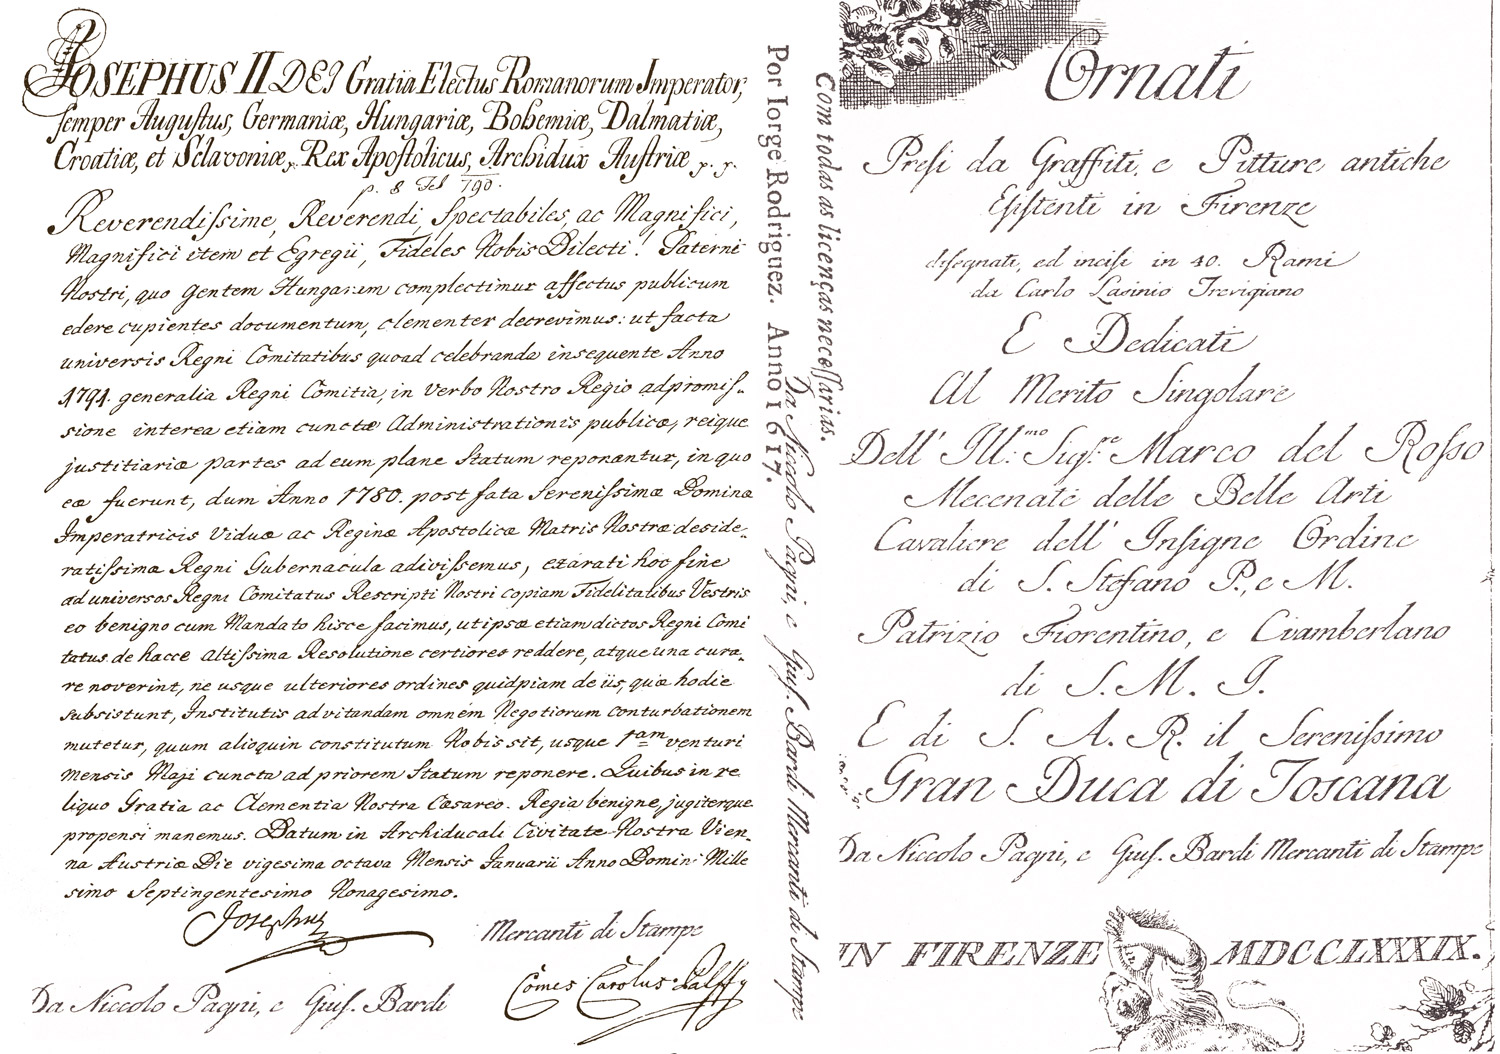 JOSEPHUS II DEI Gratia Electus Romanorum Imperator,
semper Augustus, Germaniæ, Hungariæ, Bohemiæ, Dalmatiæ,
Croatiæ, et Sclavoniæ, Rex Apostolicus, Archidux Austriæ p. p.
p. 8 Feb 790.
Reverendissime, Reverendi, Spectabiles, ac Magnifici,
Magnifici item et Egregii, Fideles Nobis Dilecti! Paterni
Nostri, quo Gentem Hungaram complectimur affectus publicum
edere cupientes documentum, clementer decrevimus: ut facta
universis Regni Comitatibus quoad celebranda insequente Anno
1791. generalia Regni Comitia, in verbo Nostro Regio adpromis-
sione interea etiam cunctæ Administrationis publicæ, reique
justitiariæ partes ad eum plane Statum reponantur, in quo
eæ fuerunt, dum Anno 1780. post fata Serenissimæ Dominæ
Imperatricis Viduæ ac Reginæ Apostolicæ Matris Nostræ deside-
ratissimæ Regni Gubernacula adivissemus, exarati hoc fine
ad universos Regni Comitatus Rescripti Nostri copiam Fidelitatibus Vestris
eo benigno cum Mandato hisce facimus, ut ipsæ etiam dictos Regni Comi
tatus de hacce Altissima Resolutione certiores reddere, atque una cura-
re noverint, ne usque ulteriores ordines quidpiam de iis, quæ hodie
subsistunt, Institutis ad vitandam omnem Negotiorum conturbationem
mutetur, quum alioquin constitutum Nobis sit, usque 1am venturi
Mensis Maji cuncta ad priorem Statum reponere. Quibus in re
liquo Gratia ac Clementia Nostra Cæsareo-Regia benigne, jugiterque
propensi manemus. Datum in Archiducali Civitate Nostra Vien-
na Austriæ Die vigesima octava Mensis Januarii Anno Domini Mille
simo Septingentesimo Nonagesimo.
Josephus
Mercanti di Stampe
Comes Carolus Palffy
Da Niccolo Pagni, e Gius. Bardi
Por Iorge Rodriguez. Anno 1617.
Com todas as licenças necessarias.
Da Niccolo Pagni, e Gius. Bardi Mercanti di Stampe
Ornati
Presi da Graffiti, e Pitture antiche
Esistenti in Firenze
disegnati, ed incisi in 40. Rami
da Carlo Lasinio Trevigiano
E Dedicati
Al Merito Singolare
Dell' Ill.mo Sig.re Marco del Rosso
Mecenate delle Belle Arti
Cavaliere dell' Insigne Ordine
di S. Stefano P., e M.
Patrizio Fiorentino, e Ciamberlano
di S. M. I.
E di S. A. R. il Serenissimo
Gran Duca di Toscana
Da Niccolo Pagni, e Gius. Bardi Mercanti di Stampe
IN FIRENZE MDCCLXXXIX.